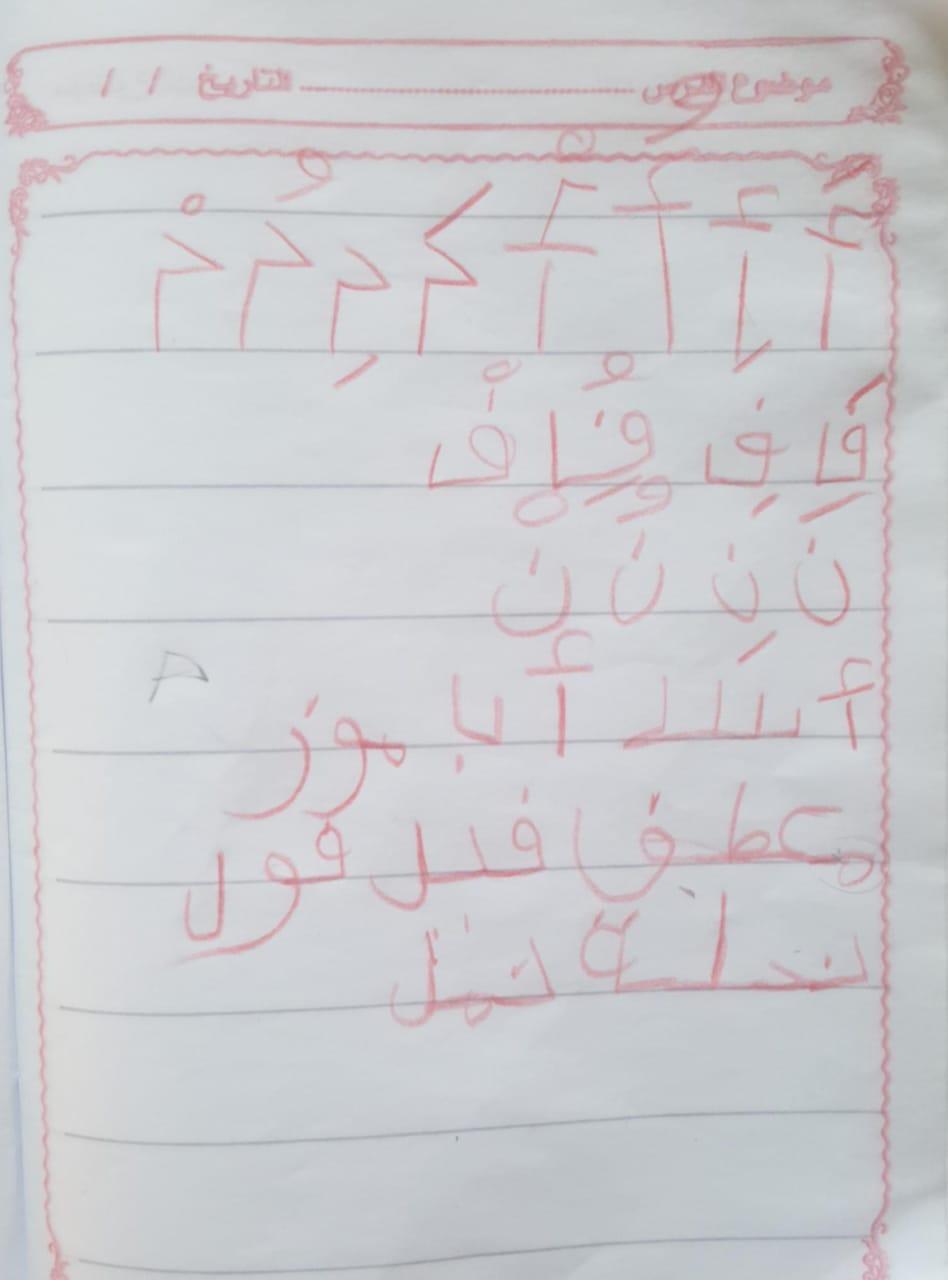 موضوع الدرس ............ التاريخ / /
أَ أِ أُ أْ مَ مِ مُ مْ
فَ فِ فُ فْ
نَ نِ نُ نْ
أسد أب موز
فول
نخلة نمل